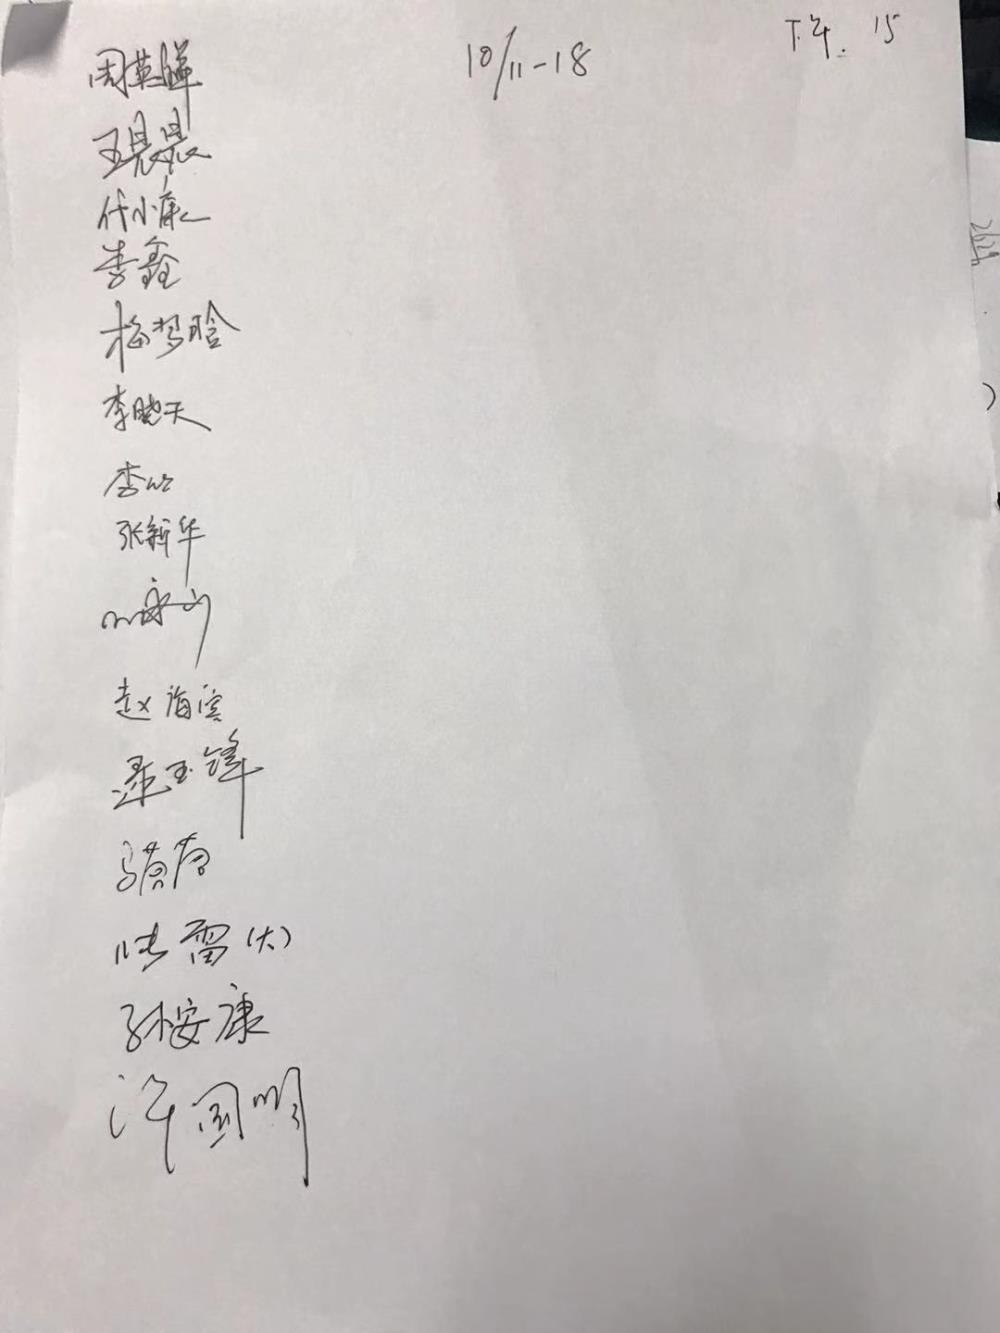 10/11-18
下午. 15
周英晖
王晨晨
代小康
李鑫
梅梦晗
李晓天
李
张新华
永山
赵海滨
玉锋
陆雷(大)
孙安康
许国明